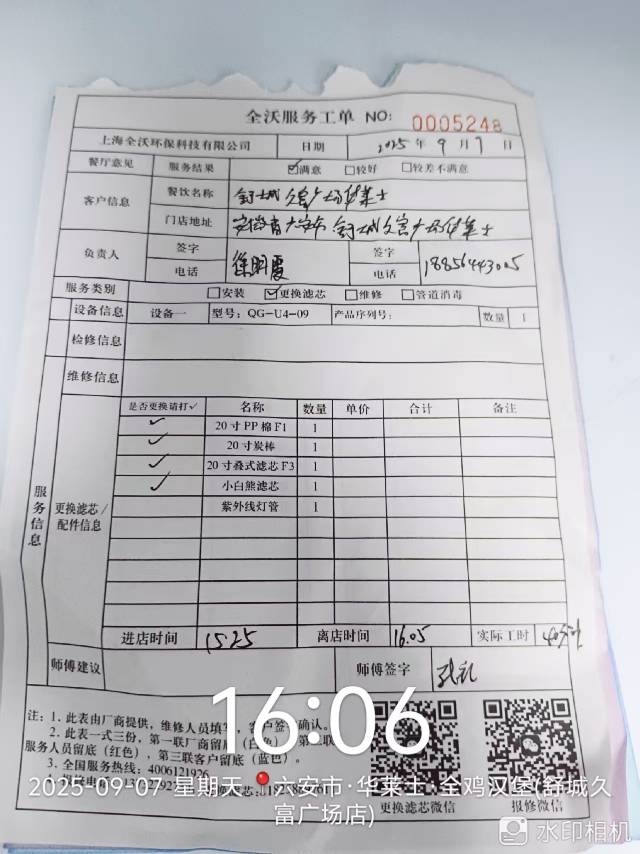 全沃服务工单 NO: 0005248
上海全沃环保科技有限公司 日期 2025 年 9 月 7 日
餐厅意见 服务结果 ☑满意 □较好 □较差不满意
客户信息 餐饮名称 舒城久富广场华莱士
门店地址 安徽省六安市舒城久富广场华莱士
负责人 签字 徐明霞 签字
电话 电话 18856443005
服务类别 □安装 ☑更换滤芯 □维修 □管道消毒
设备信息 设备一 型号: QG-U4-09 产品序列号: 数量 1
检修信息
维修信息
服务信息
更换滤芯/配件信息
是否更换请打✓ 名称 数量 单价 合计 备注
✓ 20寸PP棉F1 1
✓ 20寸炭棒 1
✓ 20寸叠式滤芯F3 1
✓ 小白熊滤芯 1
紫外线灯管 1
进店时间 15:25 离店时间 16:05 实际工时 40分
师傅建议 师傅签字
注: 1. 此表由厂商提供, 维修人员填写, 客户签字确认。
2. 此表一式三份, 第一联厂商留底(白色), 第二联
服务人员留底(红色), 第三联客户留底(蓝色)。
3. 全国服务热线: 4006121926
更换滤芯微信 报修微信
16:06
2025-09-07 星期天 六安市·华莱士·全鸡汉堡(舒城久富广场店)
水印相机